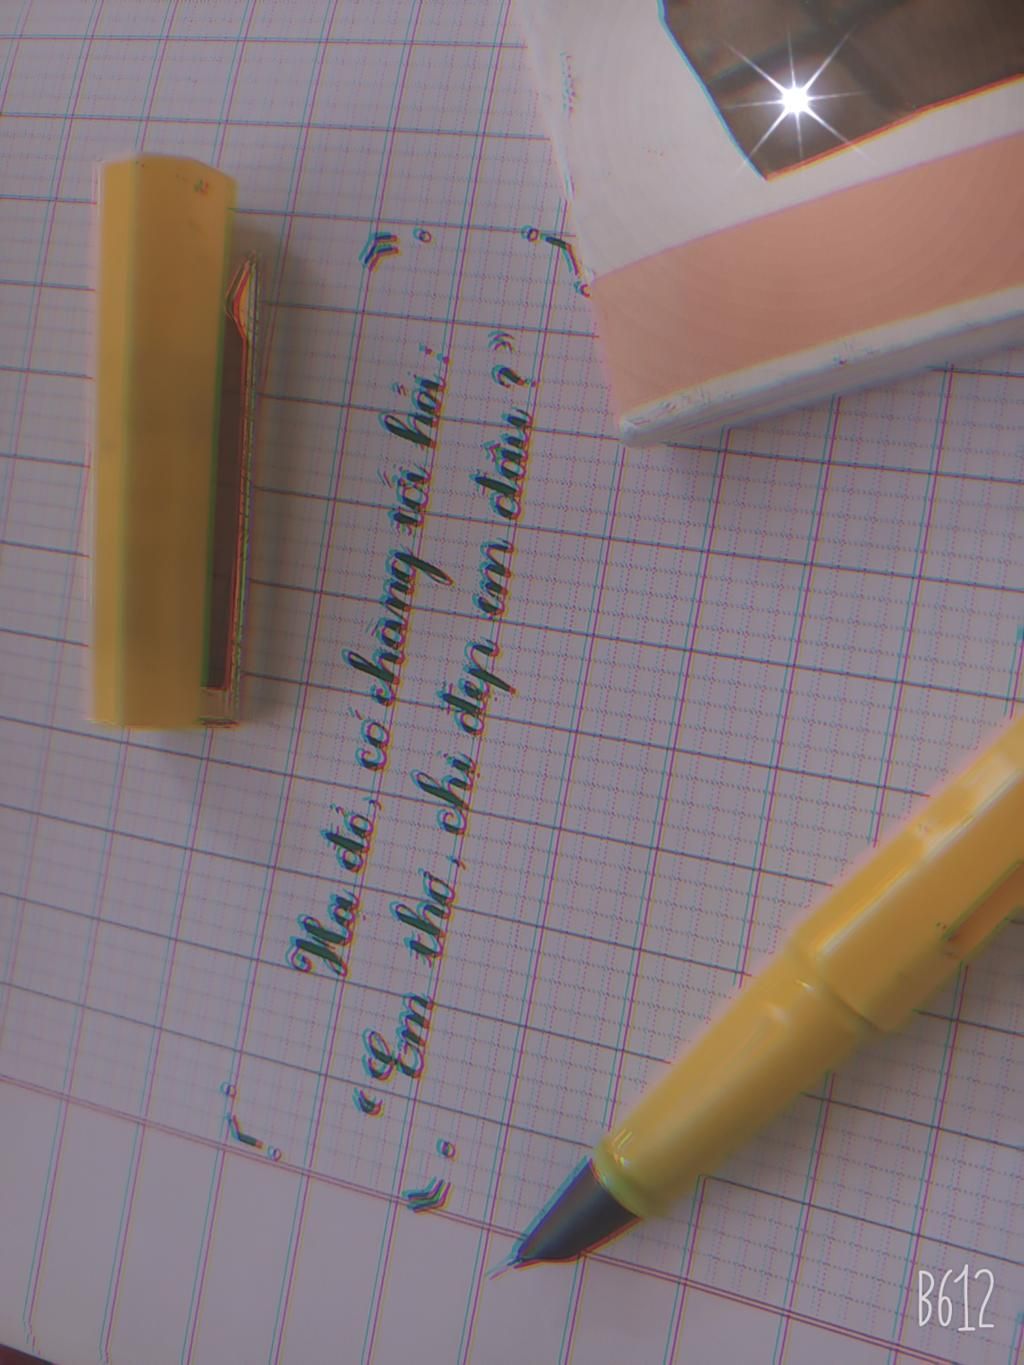 Hạ đỏ, có chàng tới hỏi :
“ Em thơ, chị đẹp em đâu ? ”
B612